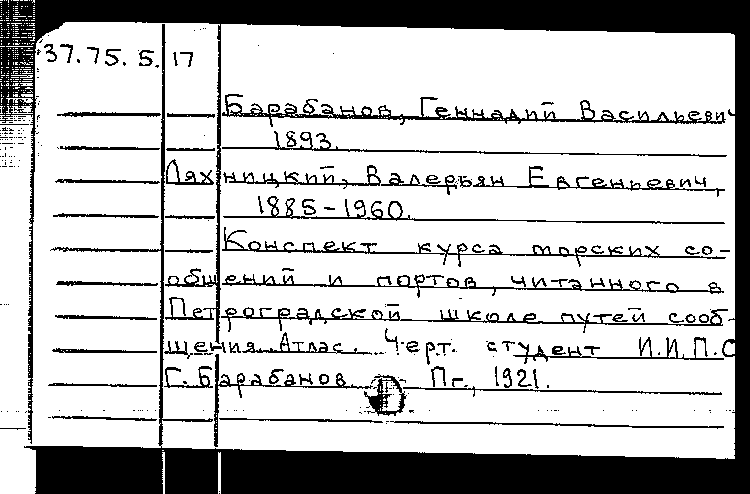 37.75.5.17
Барабанов, Геннадий Васильевич
1893.
Ляхницкий, Валерьян Евгеньевич,
1885-1960.
Конспект курса морских со-
общений и портов, читанного в
Петроградской школе путей сооб-
щения. Атлас. Черт. студент И.И.П.С
Г. Барабанов. Пг., 1921.